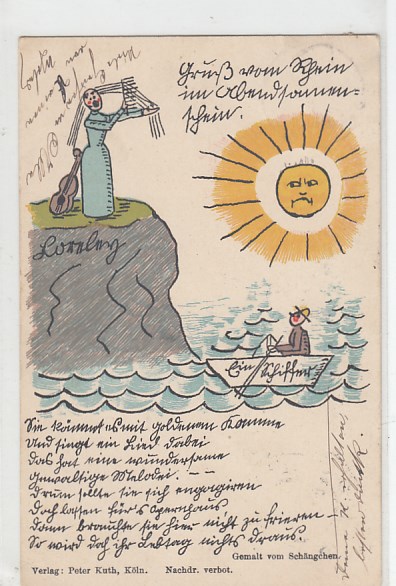 Gruß vom Rhein
im Abendsonnen-
schein.
Loreley
Ein Schiffer
Sie kämmt es mit goldenem Kamme
Und singt ein Lied dabei
Das hat eine wundersame
Gewaltige Melodei. – –
Drum sollte sie sich engagiren
Doch lassen für's Opernhaus
Dann brauchte sie hier nicht zu frieren –
So wird doch ihr Lebtag nichts draus.
Gemalt vom Schängchen.
Verlag: Peter Kuth, Köln. Nachdr. verbot.